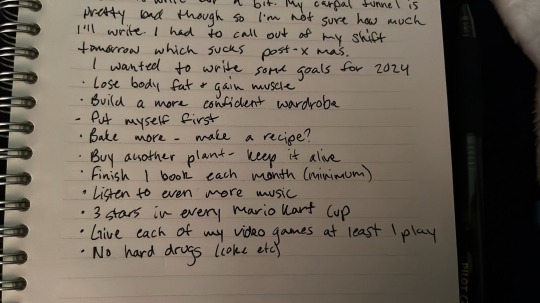 for a bit. My carpal tunnel is
pretty bad though so I'm not sure how much
I'll write. I had to call out of my shift
tomorrow which sucks post-x mas.
I wanted to write some goals for 2024
· Lose body fat + gain muscle
· Build a more confident wardrobe
- Put myself first
· Bake more - make a recipe?
· Buy another plant - keep it alive
· Finish 1 book each month (minimum)
· Listen to even more music
· 3 stars in every Mario Kart Cup
· Give each of my video games at least 1 play
· No hard drugs (coke etc)
PILOT